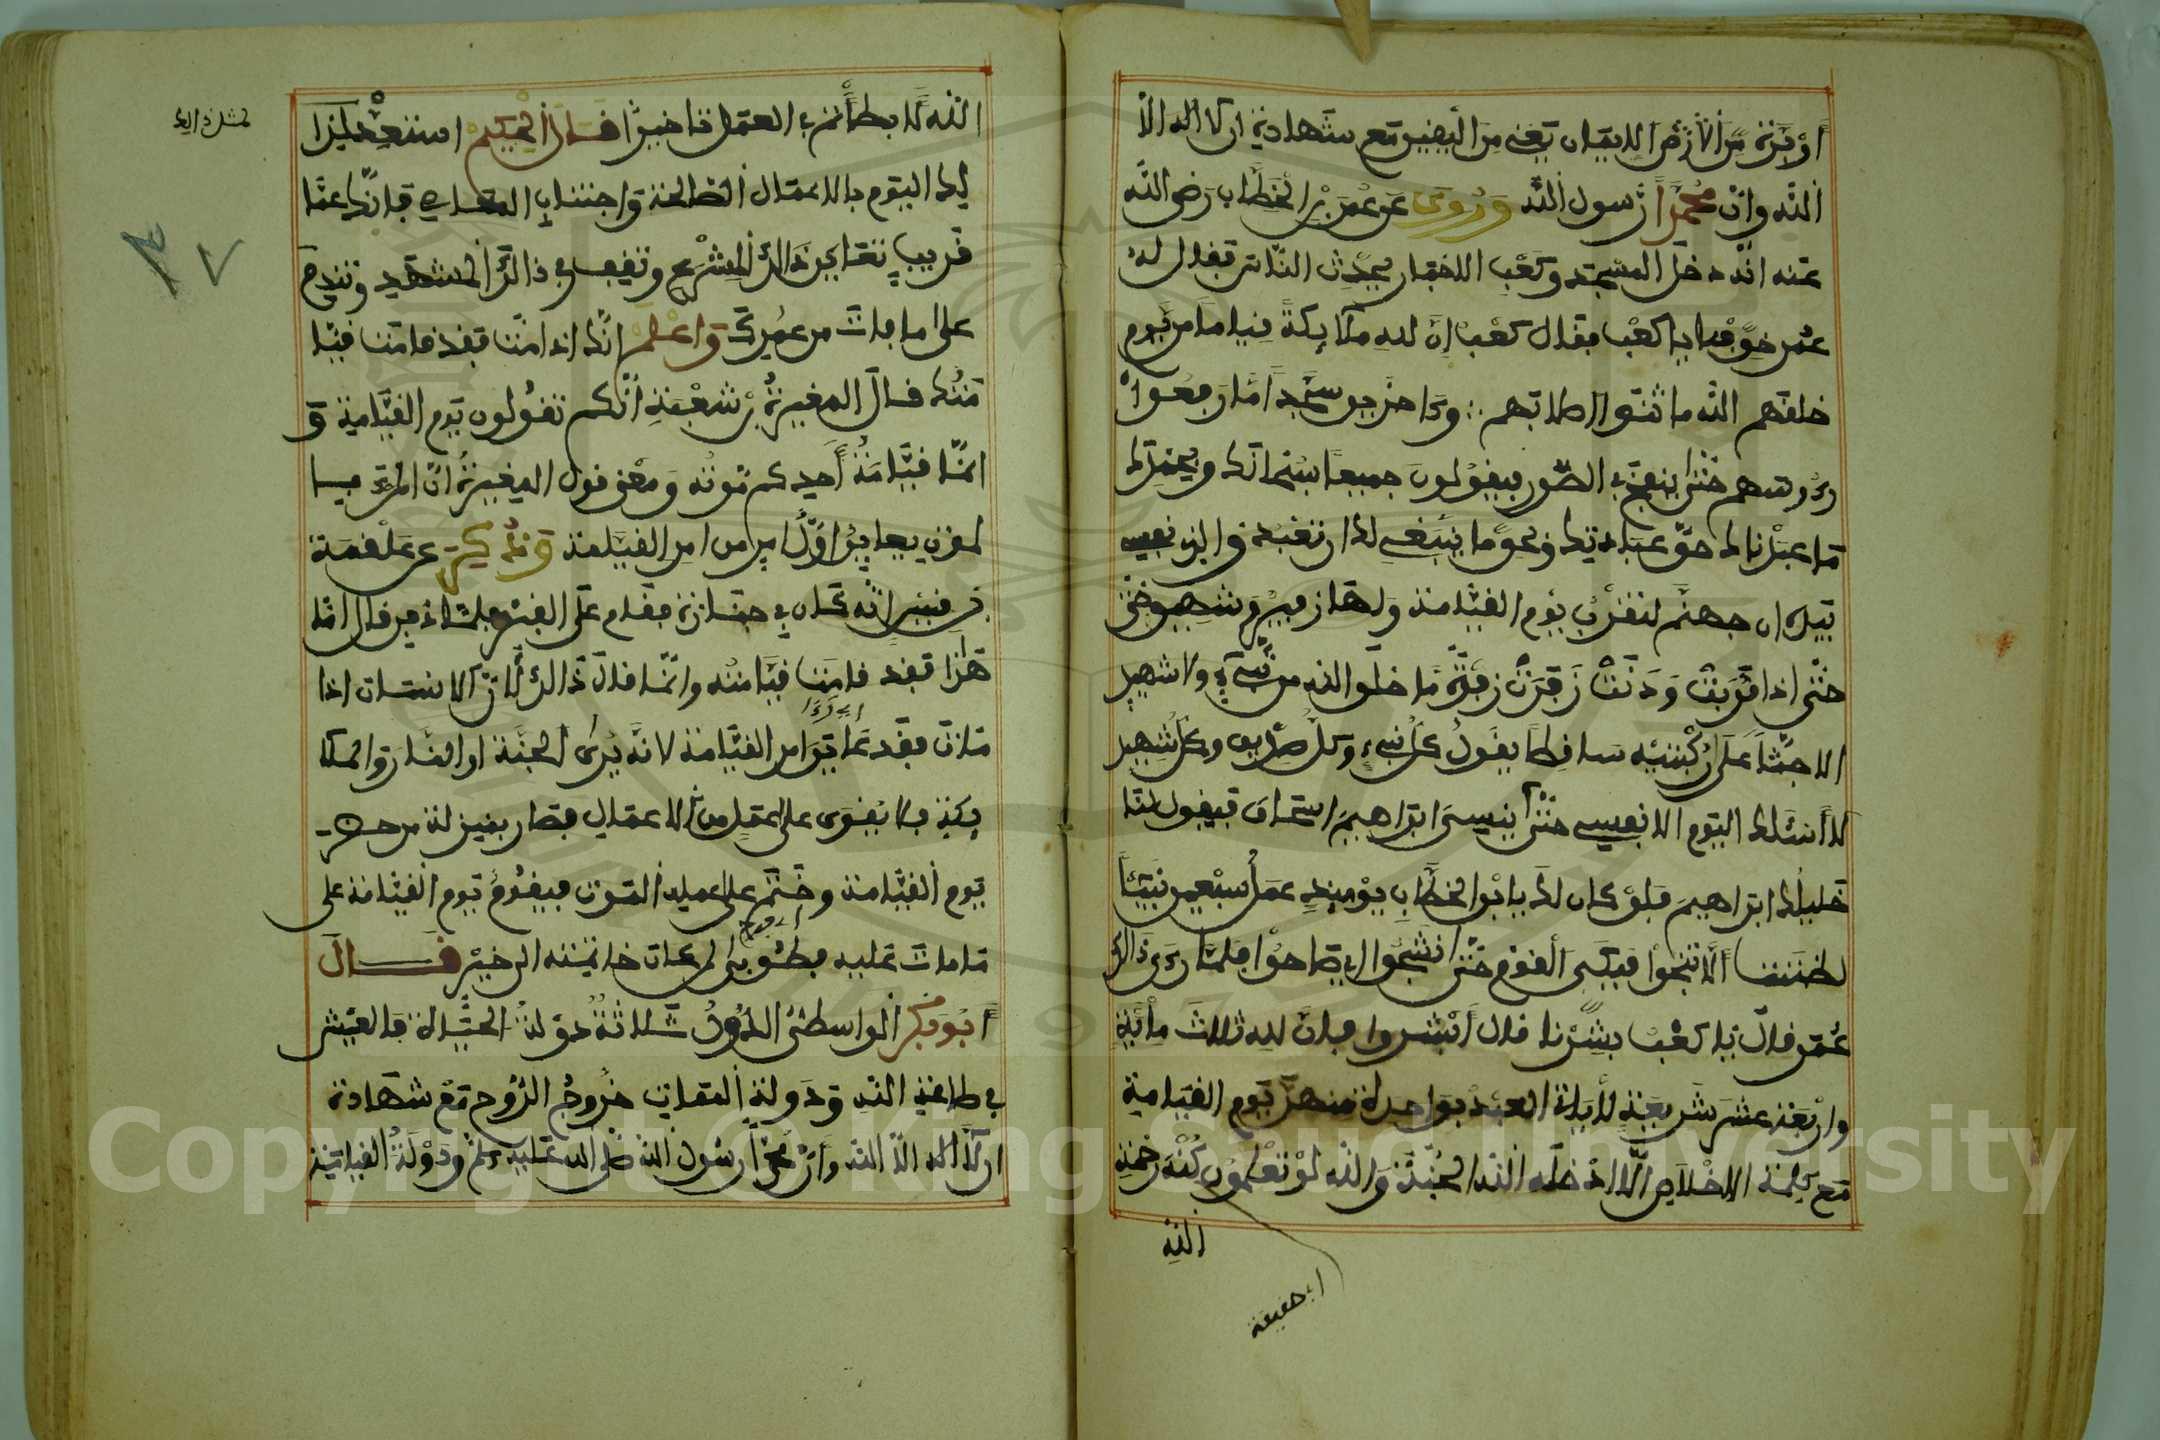 أوفر من الأرض الإيمان يعني من اليقين مع شهادة ان لا اله الا
الله وأن محمدا رسول الله وروي عن عمر بن الخطاب رضي الله
عنه انه دخل المسجد وكعب الاخبار يحدث الناس فقال له
عمر خوفنا يا كعب فقال كعب إن لله ملائكة قياما من يوم
خلقهم الله ما ثنوا اصلابهم وءاخرين سجدا ما رفعوا
رءوسهم حتى ينفخ في الصور فيقولون جميعا سبحانك وبحمدك
ما عبدناك حق عبادتك وحق ما ينبغي لك ان تعبد والذي نفسي
بيده ان جهنم لتقرب يوم القيامة ولها زفير وشهيق حتى
حتى اذا قربت ودنت زفرت زفرة ما خلق الله من نبيء ولا شهيد
الا جثا على ركبتيه ساقطا يقول كل نبيء وكل صديق وكل شهيد
لا أسئلك اليوم الا نفسي حتى ينسى ابراهيم اسحاق فيقول انا
خليلك ابراهيم فلو كان لك يا ابن الخطاب يومئذ عمل سبعين نبيئا
لظننت ألا تنجوا فبكى القوم حتى انشجوا فلما رءى ذالك
عمر قال يا كعب بشرنا قال أبشروا فإن لله ثلاث مائة
واربعة عشر شريعة لا يات العبد بواحدة منهن يوم القيامة
مع كلمة الاخلاص الا ادخله الله الجنة والله لو تعلمون كنه رحمة
الله
اي حقيقة
الله لا بطأتم في العمل قال الحكيم استعد
لذلك اليوم بالاعمال الصالحة واجتناب المعاصي فإنك عما
قريب تعاين ذالك وتقف في ذالك المشهد وتندم
على ما فات من عمرك واعلم انك اذا مت فقد قامت قيا
متك قال المغيرة بن شعبة أنكم تقولون يوم القيامة و
انما قيامة أحدكم موته ومعنى قول المغيرة ان المرء
يعاين أول امر من امر القيامة وذكر عن علقمة
بن قيس انه كان في جنازة فقام على القبر فلما دفن قال اما
هذا فقد قامت قيامته وانما قال ذالك لأن الانسان اذا
مات فقد عاين امر القيامة لانه يرى الجنة او النار والملا
ئكة فلا يقوى على عمل من الاعمال فصار بمنزلة من حضر
يوم القيامة وختم على عمله الموت فيقوم يوم القيامة على
ما مات عليه فطوبى لمن كان خاتمته الى خير قال
أبو بكر الواسطي الدول ثلاثة دولة الحياة فالعيش
في طاعة الله ودولة الممات خروج الروح مع شهادة
ان لا اله الا الله وأن محمدا رسول الله صلى الله عليه وسلم ودولة القيامة
Copyright © King Saud University